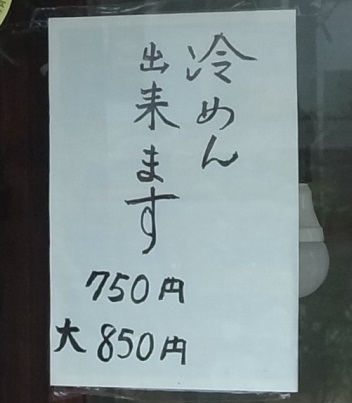 冷めん
出来ます
750円
大 850円